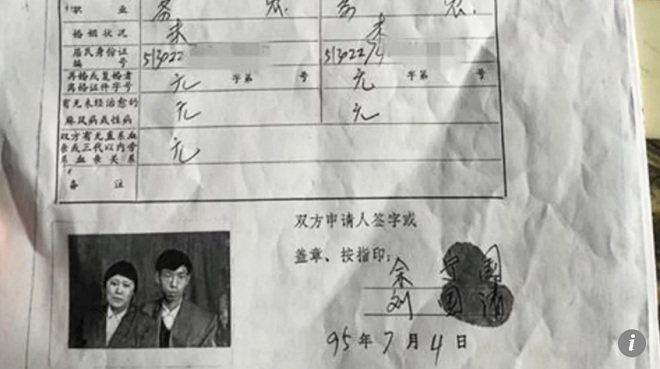 职 业 务 农. 务 农.
婚姻状况 未 未
居民身份证
编 号 513022 51302274
再婚或复婚者
离婚证件字号 无 字第 号 无 字第 号
有无未经治愈的
麻风病或性病 无 无
双方有无直系血
亲或三代以内旁
系血亲关系 无
备 注
双方申请人签字或
盖章、按指印:
余 宁 国
刘 国 清
95年7月4日